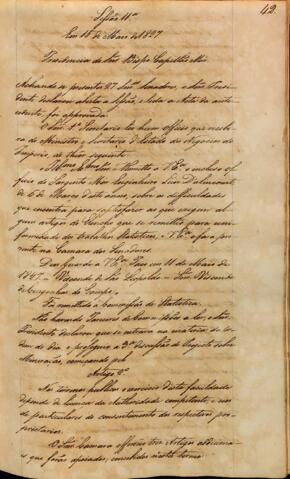 42.
Sessão 11ª
Em 15 de Maio de 1827
Presidencia do Snr. Bispo Capellão Mór
Achando-se presentes 27 Snrs. Senadores, o Snr. Presi-
dente declarou aberta a Sessão, e lida a Acta da ante-
cedente foi approvada.
O Snr. 1º Secretario leu hum officio que recebêra
do Ministro, e Secretario d'Estado dos Negocios do
Imperio, do theor seguinte
Illmo e Exmo Snr. Remetto a V. Exª o incluso of-
ficio do Sargento Mór Engenheiro Luiz
de 6 de Março deste anno, sobre as difficuldades
que encontra para satisfazer ao que exigem al-
guns artigos do que se remetteo para uni-
formidade dos trabalhos Statisticos, V. Exª o fará pre-
sente na Camara dos Senadores.
Deos Guarde a V. Exª Paço em 11 de Maio de
1827 - Visconde de São Leopoldo - Snr. Visconde
de Congonhas do Campo.
Foi remettido á Commissão de Statistica.
Não havendo Pareceres de Commissões a ler, o Snr.
Presidente declarou que se entrava na materia da or-
dem do dia, e proseguio a 3ª discussão do Projecto sobre
Mineração, começando pelo
Artigo 2º
Nos terrenos publicos o exercicio desta faculdade
depende de licença da Authoridade competente, e nos
de particulares do consentimento dos respectivos pro-
prietarios.
O Snr. Camara offereceo tres Artigos additivos
que forão apoiados, concebidos nestes termos